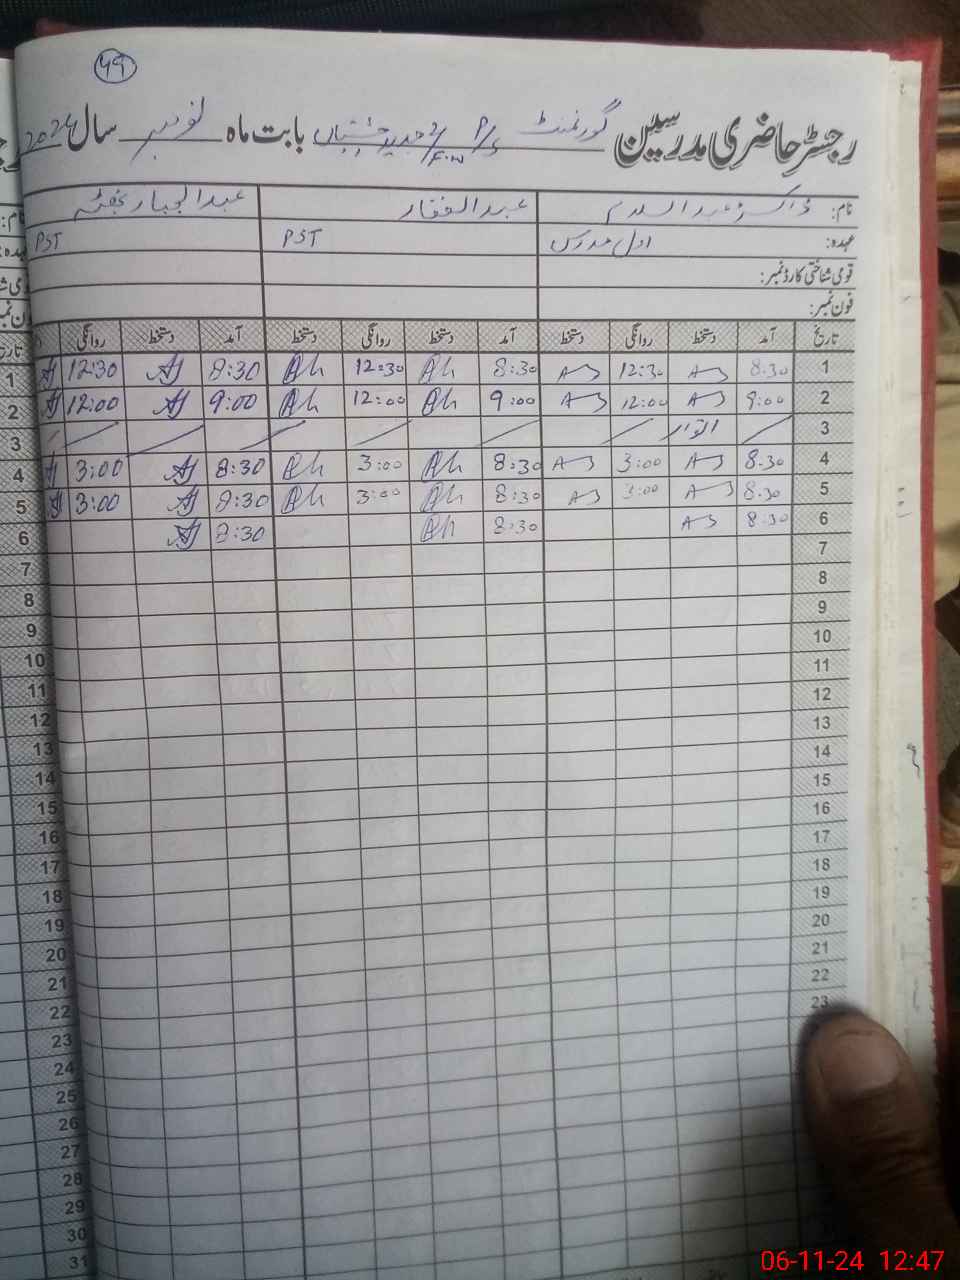 49
رجسٹر حاضری مدرسین گورنمنٹ P/S 2/F.W جدید بابت ماہ نومبر سال 2024
نام: ڈاکٹر عبدالسلام عبدالغفار عبدالجبار
عہدہ: اول مدرس PST PST
قومی شناختی کارڈ نمبر:
فون نمبر:
تاریخ آمد دستخط روانگی دستخط آمد دستخط روانگی دستخط آمد دستخط روانگی
1 8:30 AS 12:30 AS 8:30 Ah 12:30 Ah 8:30 AJ 12:30 AJ 1
2 9:00 AS 12:00 AS 9:00 Ah 12:00 Ah 9:00 AJ 12:00 AJ 2
3 اتوار 3
4 8.30 AS 3:00 AS 8:30 Ah 3:00 Ah 8:30 AJ 3:00 AJ 4
5 8.30 AS 3:00 AS 8:30 Ah 3:00 Ah 8:30 AJ 3:00 AJ 5
6 8:30 AS 8:30 Ah 8:30 AJ 6
7 7
8 8
9 9
10 10
11 11
12 12
13 13
14 14
15 15
16 16
17 17
18 18
19 19
20 20
21 21
22 22
23 23
24
25
26
27
28
29
30
31
06-11-24 12:47